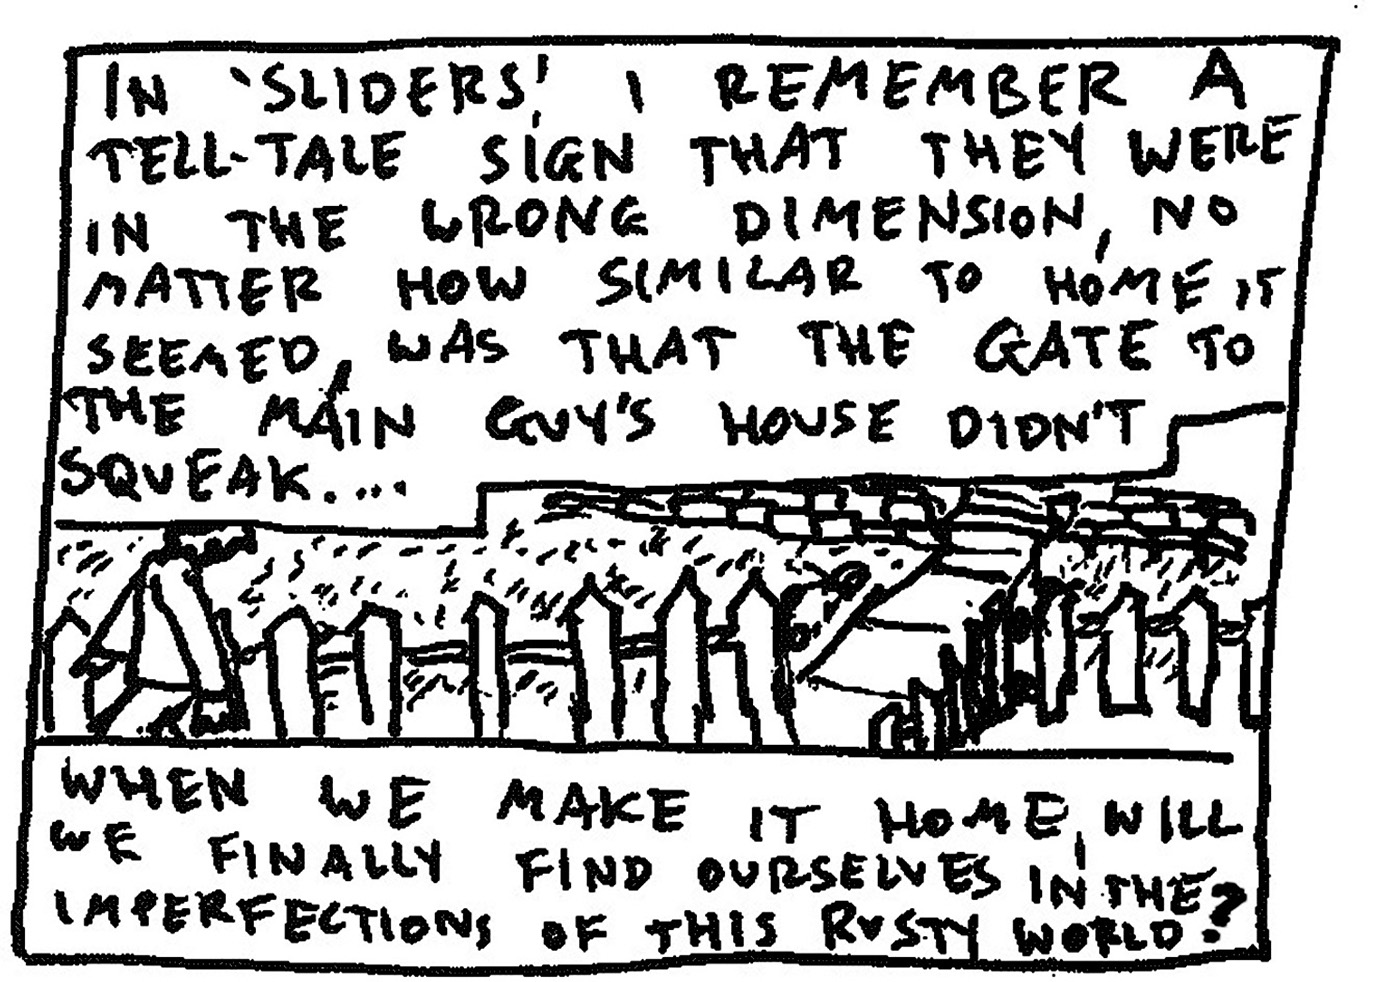 IN 'SLIDERS', I REMEMBER A
TELL-TALE SIGN THAT THEY WERE
IN THE WRONG DIMENSION, NO
MATTER HOW SIMILAR TO HOME IT
SEEMED, WAS THAT THE GATE TO
THE MAIN GUY'S HOUSE DIDN'T
SQUEAK....
WHEN WE MAKE IT HOME, WILL
WE FINALLY FIND OURSELVES IN THE
IMPERFECTIONS OF THIS RUSTY WORLD?